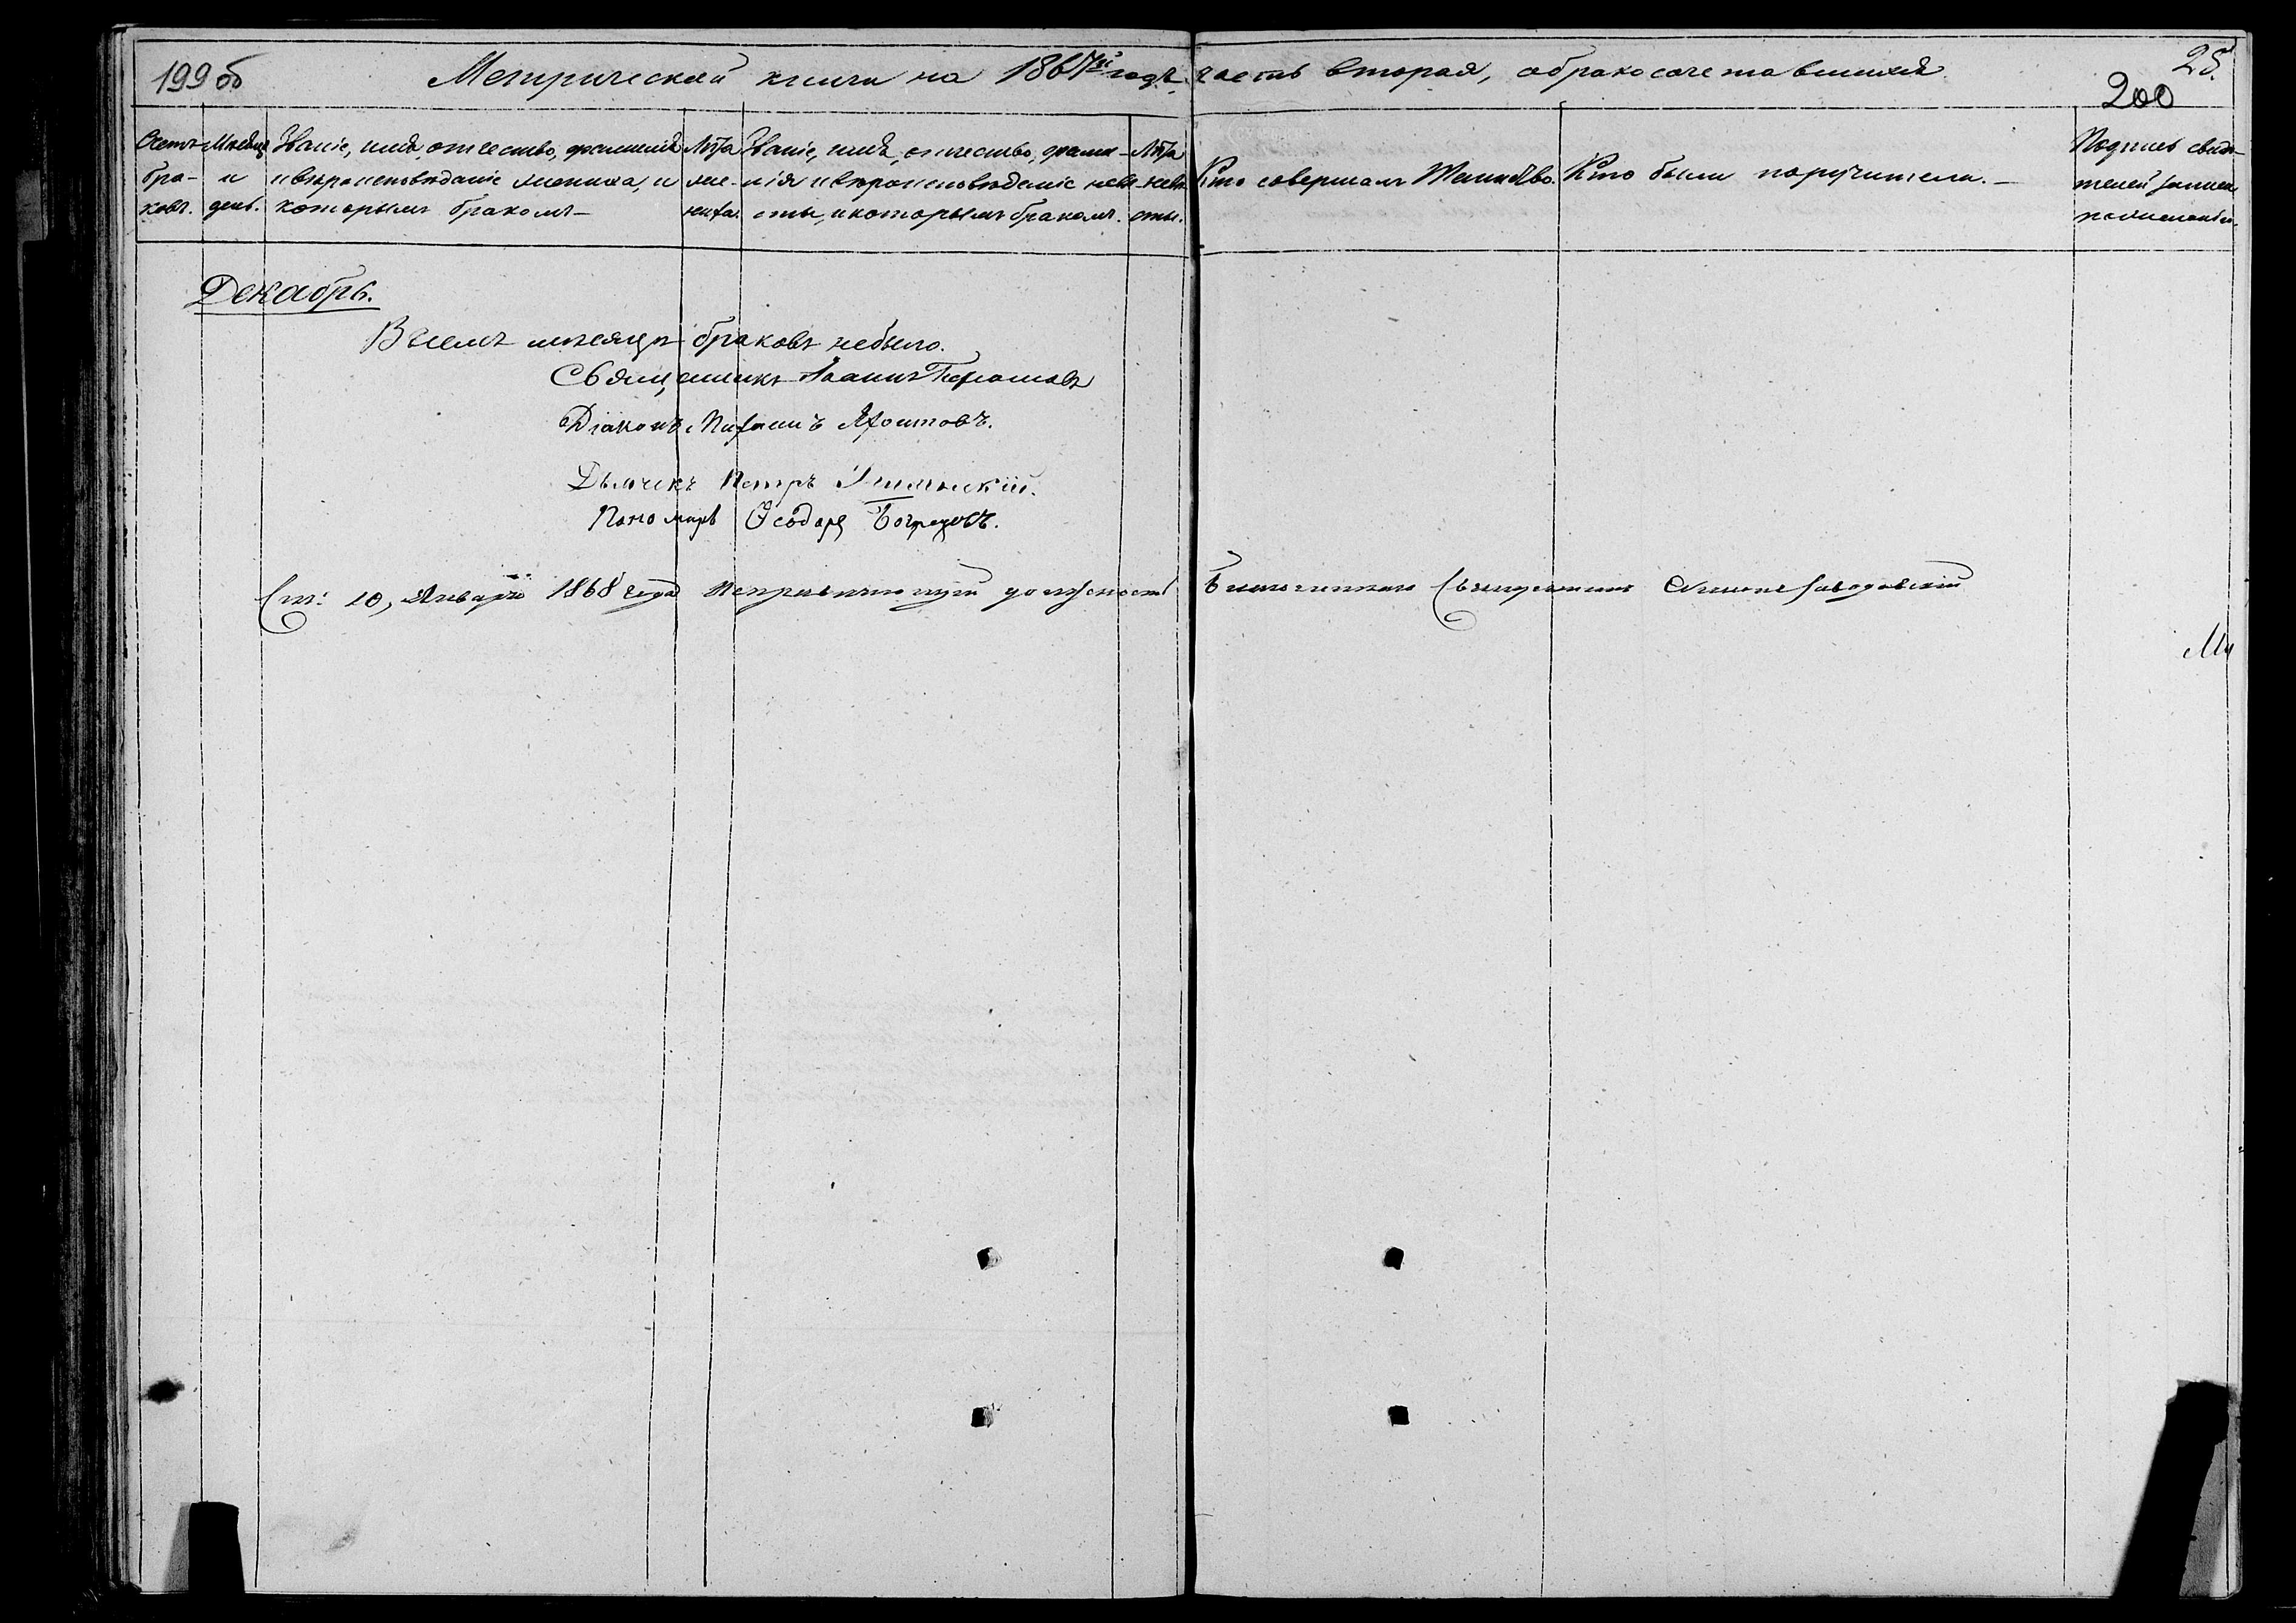 199 об
Метрической книги на 1867й годъ, часть вторая, о бракосочетавшихся
25.
200
Счетъ бра- ковъ.
Мѣсяцъ и день.
Званіе, имя, отчество, фамилія
и вѣроисповѣданіе жениха, и
которымъ бракомъ –
Лѣта
же-
ниха.
Званіе, имя, отчество, фами-
лія и вѣроисповѣданіе невѣ-
сты, и которымъ бракомъ.
Лѣта
невѣ-
сты.
Кто совершалъ Таинство.
Кто были поручители. –
Подпись свидѣ-
телей записи
по желанію.
Декабрь.
В семъ мѣсяцѣ браковъ небыло.
Священникъ Іоаннъ
Діаконъ
Дьячекъ Петръ
Пономарь Ѳеодоръ
10, Января 1868 года Исправляющій должность Благочиннаго Священникъ